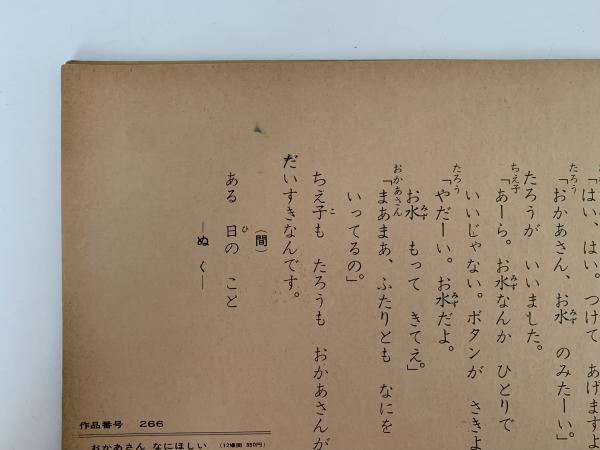 「はい、はい。つけて あげますよ
たろう
「おかあさん、お水 のみたーい。」
たろうが いいました。
ちえ子
「あーら。お水なんか ひとりで
いいじゃない。ボタンが さきよ
たろう
「やだーい。お水だよ。
お水 もって きてえ。」
おかあさん
「まあまあ、ふたりとも なにを
いってるの。」
ちえ子も たろうも おかあさんが
だいすきなんです。
(間)
ある 日の こと
―ぬ く―
作品番号 266
おかあさん なにほしい (12場面 350円)